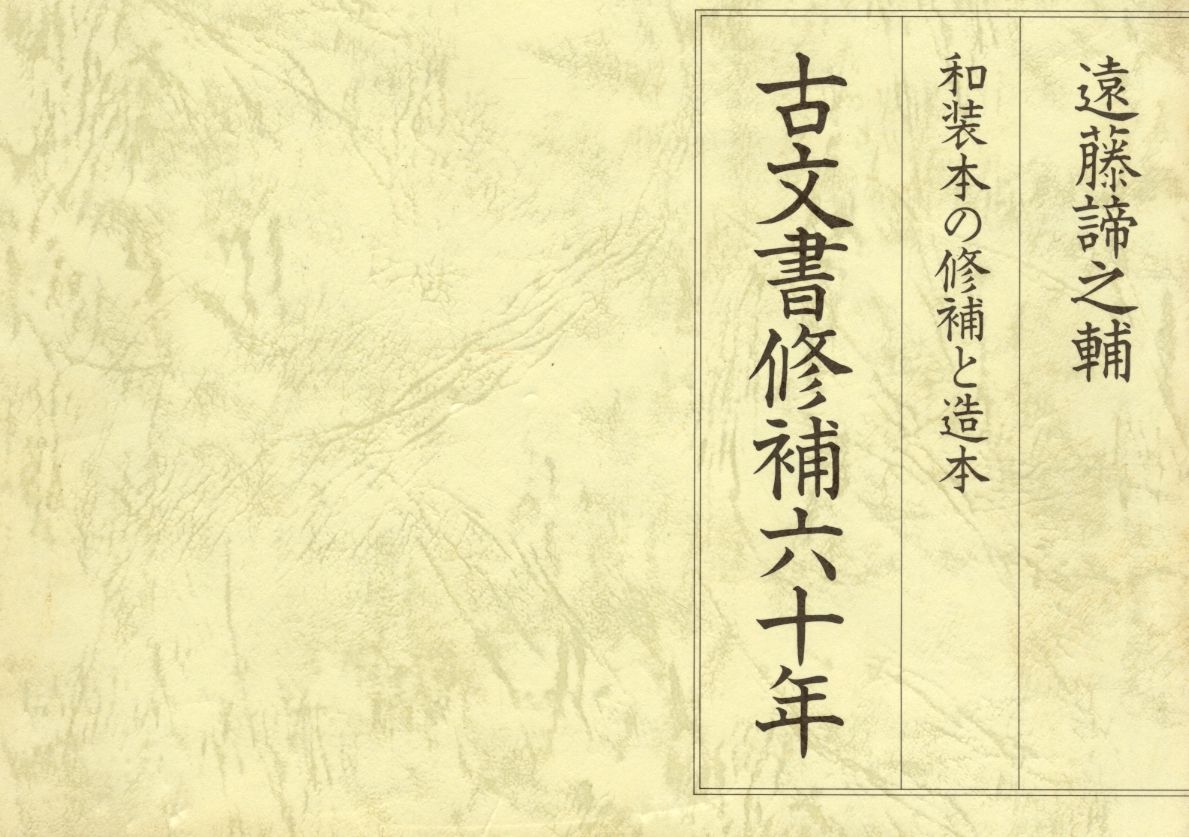 遠藤諦之輔
和装本の修補と造本
古文書修補六十年